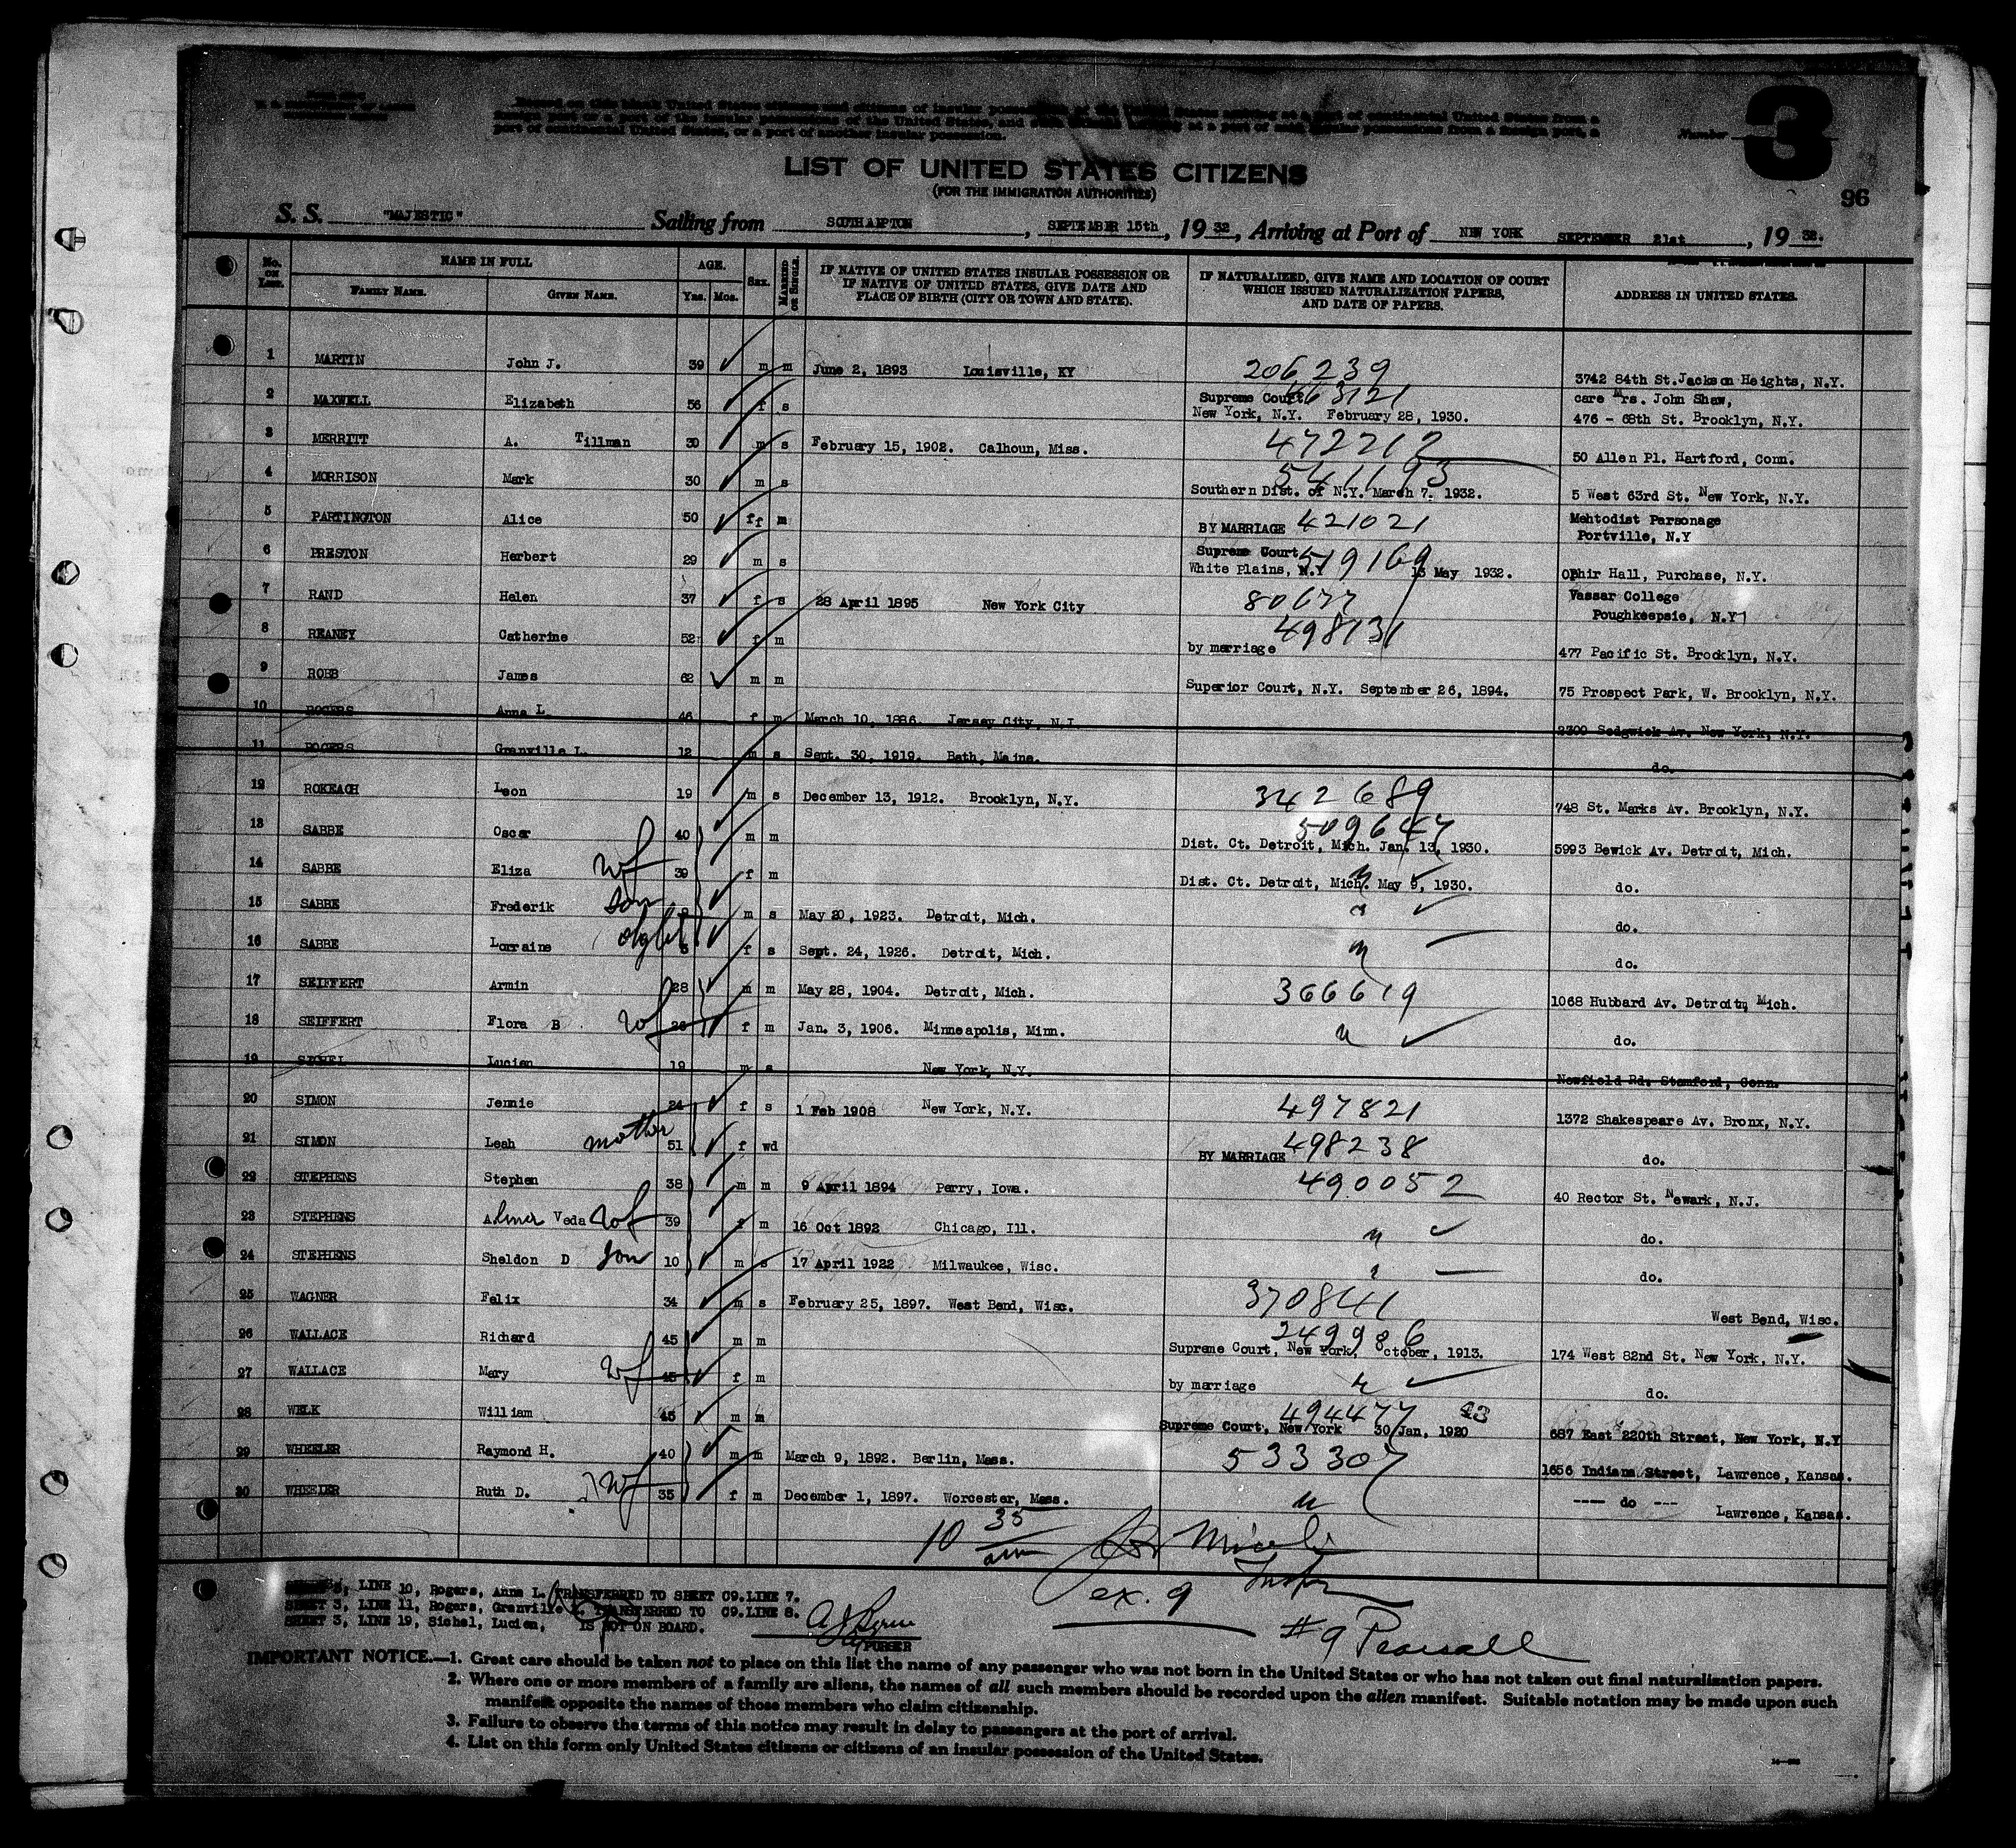 Number 3
96
LIST OF UNITED STATES CITIZENS
(FOR THE IMMIGRATION AUTHORITIES)
S. S. "MAJESTIC" Sailing from SOUTHAMPTON, SEPTEMBER 15th, 1932, Arriving at Port of NEW YORK SEPTEMBER 21st, 1932.
No. on List. NAME IN FULL AGE. Sex. MARRIED OR SINGLE. IF NATIVE OF UNITED STATES INSULAR POSSESSION OR IF NATIVE OF UNITED STATES, GIVE DATE AND PLACE OF BIRTH (CITY OR TOWN AND STATE). IF NATURALIZED, GIVE NAME AND LOCATION OF COURT WHICH ISSUED NATURALIZATION PAPERS, AND DATE OF PAPERS. ADDRESS IN UNITED STATES.
FAMILY NAME. GIVEN NAME. Yrs. Mos.
1 MARTIN John J. 39 m m June 2, 1893 Louisville, KY 206239 3742 84th St. Jackson Heights, N.Y.
2 MAXWELL Elizabeth 56 f s Supreme Court 463121 New York, N.Y. February 28, 1930. care Mrs. John Shaw, 476 - 68th St. Brooklyn, N.Y.
3 MERRITT A. Tillman 30 m s February 15, 1902. Calhoun, Miss. 472212 50 Allen Pl. Hartford, Conn.
4 MORRISON Mark 30 m s 541193 Southern Dist. of N.Y. March 7. 1932. 5 West 63rd St. New York, N.Y.
5 PARTINGTON Alice 50 ff m BY MARRIAGE 421021 Mehtodist Parsonage Portville, N.Y
6 PRESTON Herbert 29 m s Supreme Court 519169 White Plains, N.Y 13 May 1932. Ophir Hall, Purchase, N.Y.
7 RAND Helen 37 f s 28 April 1895 New York City 80677 Vassar College Poughkeepsie, N.Y
8 REANEY Catherine 52 f m by marriage 498131 477 Pacific St. Brooklyn, N.Y.
9 ROBB James 62 m m Superior Court, N.Y. September 26, 1894. 75 Prospect Park, W. Brooklyn, N.Y.
10 ROGERS Anna L. 46 f m March 10, 1886. Jersey City, N.J. 2300 Sedgwick Av. New York, N.Y.
11 ROGERS Granville L. 12 m s Sept. 30, 1919. Bath, Maine. do.
12 ROKEACH Leon 19 m s December 13, 1912. Brooklyn, N.Y. 342689 748 St. Marks Av. Brooklyn, N.Y.
13 SABBE Oscar 40 m m 509647 Dist. Ct. Detroit, Mich. Jan. 13, 1930. 5993 Bewick Av. Detroit, Mich.
14 SABBE Eliza wf 39 f m Dist. Ct. Detroit, Mich. May 9, 1930. do.
15 SABBE Frederik son m s May 20, 1923. Detroit, Mich. do.
16 SABBE Lorraine 5 f s Sept. 24, 1926. Detroit, Mich. do.
17 SEIFFERT Armin 28 m m May 28, 1904. Detroit, Mich. 366619 1068 Hubbard Av. Detroit, Mich.
18 SEIFFERT Flora B wf 26 f m Jan. 3, 1906. Minneapolis, Minn. do.
19 SICHEL Lucien 19 m s New York, N.Y. Newfield Rd. Stamford, Conn.
20 SIMON Jennie 24 f s 1 Feb 1908 New York, N.Y. 497821 1372 Shakespeare Av. Bronx, N.Y.
21 SIMON Leah mother 51 f wd BY MARRIAGE 498238 do.
22 STEPHENS Stephen 38 m m 9 April 1894 Perry, Iowa. 490052 40 Rector St. Newark, N.J.
23 STEPHENS Veda wf 39 f m 16 Oct 1892 Chicago, Ill. do.
24 STEPHENS Sheldon D son 10 m s 17 April 1922 Milwaukee, Wisc. do.
25 WAGNER Felix 34 m s February 25, 1897. West Bend, Wisc. 370841 West Bend, Wisc.
26 WALLACE Richard 45 m m 249986 Supreme Court, New York, October, 1913. 174 West 82nd St. New York, N.Y.
27 WALLACE Mary wf 45 f m by marriage do.
28 WELK William 45 m m 494477 Supreme Court, New York 30 Jan, 1920 687 East 220th Street, New York, N.Y
29 WHEELER Raymond H. 40 m m March 9, 1892. Berlin, Mass. 533307 1656 Indiana Street, Lawrence, Kansas.
30 WHEELER Ruth D. wf 35 f m December 1, 1897. Worcester, Mass. ---- do --- Lawrence, Kansas.
10 35 am
ex. 9
SHEET 3, LINE 10, Rogers, Anna L. TRANSFERRED TO SHEET C9.LINE 7.
SHEET 3, LINE 11, Rogers, Granville L. TRANSFERRED TO C9.LINE 8.
SHEET 3, LINE 19, Sichel, Lucien, IS NOT ON BOARD.
PURSER
#9 Pearsall
IMPORTANT NOTICE.—1. Great care should be taken not to place on this list the name of any passenger who was not born in the United States or who has not taken out final naturalization papers.
2. Where one or more members of a family are aliens, the names of all such members should be recorded upon the alien manifest. Suitable notation may be made upon such
manifest opposite the names of those members who claim citizenship.
3. Failure to observe the terms of this notice may result in delay to passengers at the port of arrival.
4. List on this form only United States citizens or citizens of an insular possession of the United States.